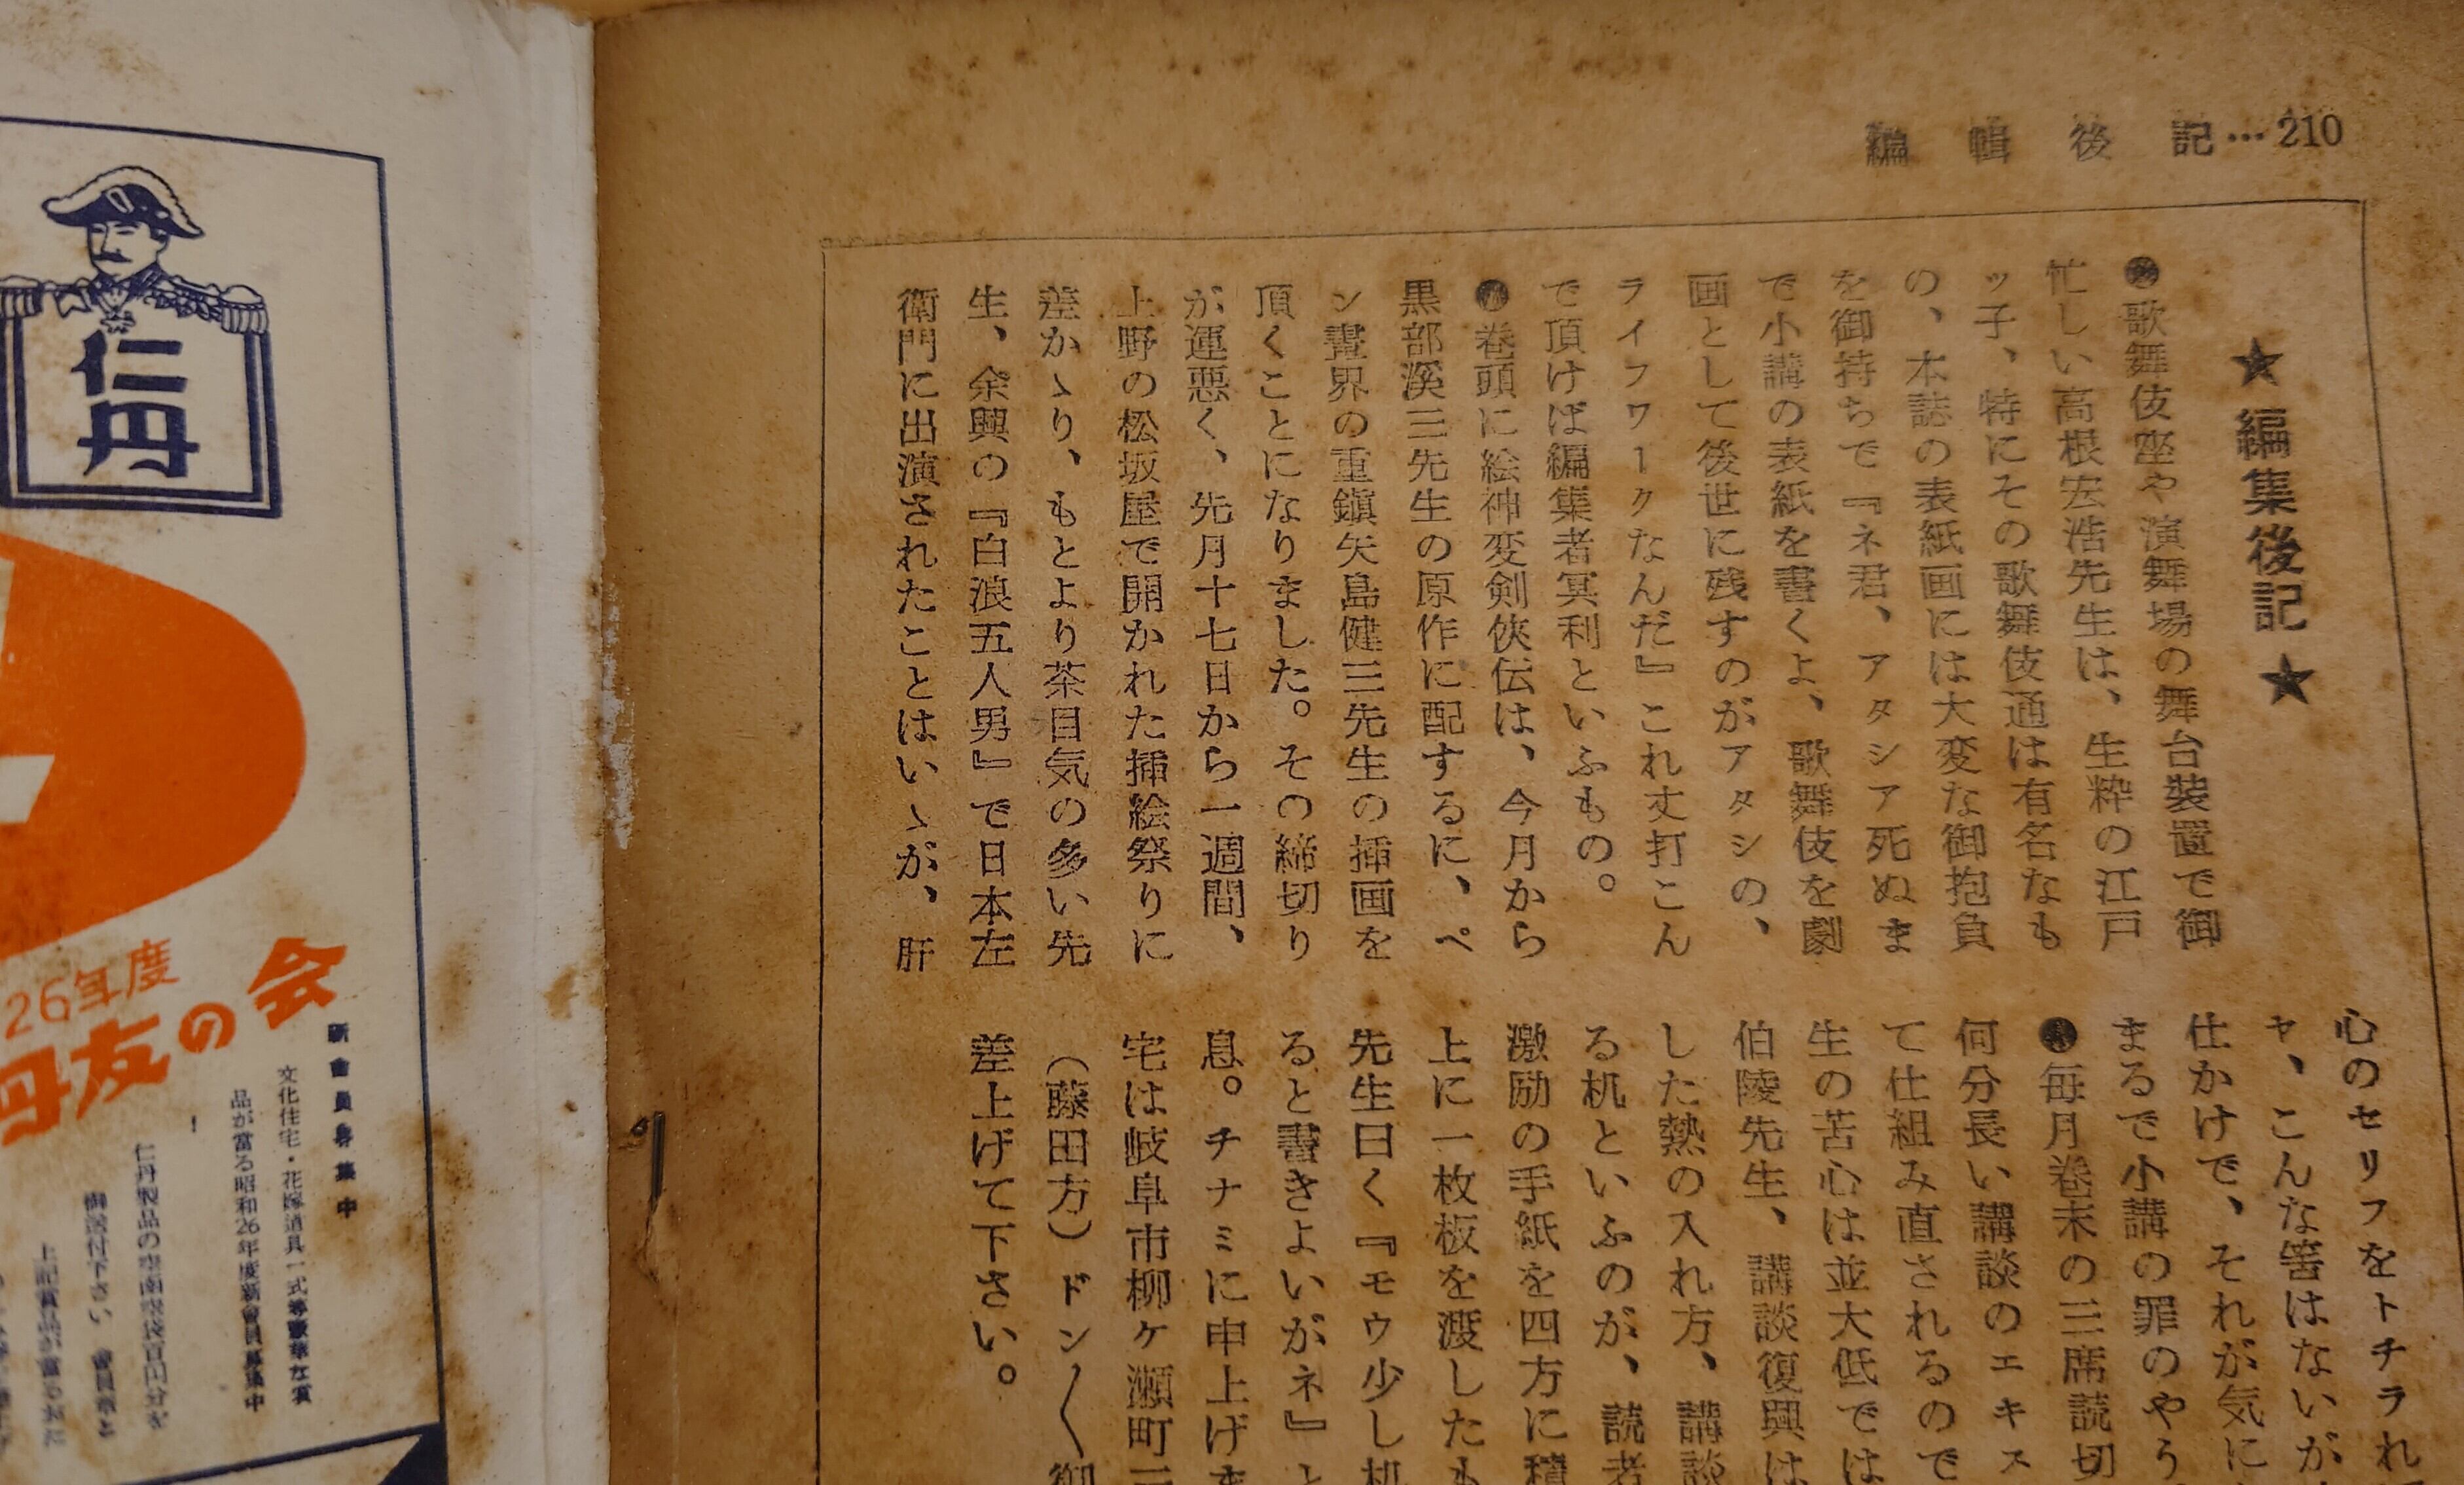 編輯後記…210
★編集後記★
●歌舞伎座や演舞場の舞台装置で御
忙しい高根宏浩先生は、生粋の江戸
ッ子、特にその歌舞伎通は有名なも
の、本誌の表紙画には大変な御抱負
を御持ちで『ネ君、アタシア死ぬま
で小講の表紙を書くよ、歌舞伎を劇
画として後世に残すのがアタシの、
ライフワークなんだ』これ丈打こん
で頂けば編集者冥利といふもの。
●巻頭に絵神変剣俠伝は、今月から
黒部溪三先生の原作に配するに、ペ
ン畫界の重鎭矢島健三先生の挿画を
頂くことになりました。その締切り
が運悪く、先月十七日から一週間、
上野の松坂屋で開かれた挿絵祭りに
差かゝり、もとより茶目気の多い先
生、余興の『白浪五人男』で日本左
衛門に出演されたことはいゝが、肝
心のセリフをトチラれ
ヤ、こんな筈はないが
仕かけで、それが気に
まるで小講の罪のやう
●毎月巻末の三席読切
何分長い講談のエキス
て仕組み直されるので
生の苦心は並大低では
伯陵先生、講談復興は
した熱の入れ方、講談
る机といふのが、読者
激励の手紙を四方に積
上に一枚板を渡したも
先生曰く『モウ少し机
ると書きよいがネ』と
息。チナミに申上げま
宅は岐阜市柳ヶ瀬町
（藤田方）ドン〱御
差上げて下さい。
仁丹
26年度
丹友の会
新會員募集中
文化住宅・花嫁道具一式等豪華な賞
品が當る昭和26年度新會員募集中
！